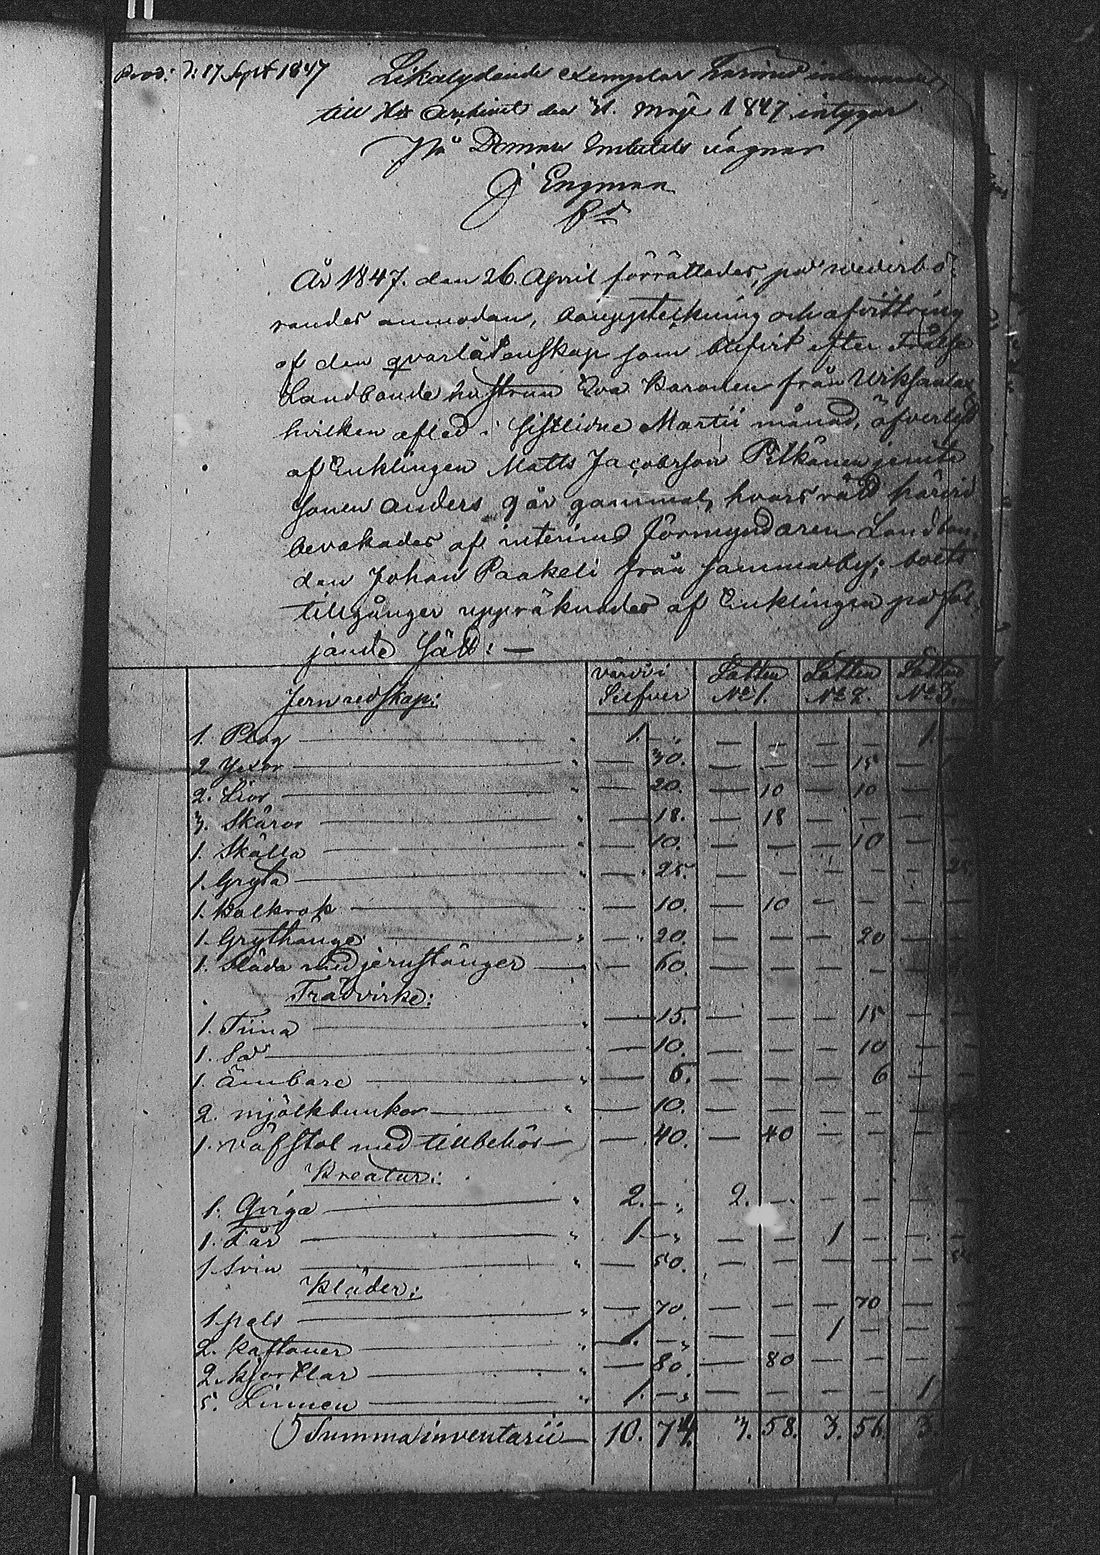 Prod: d: 17 Sept 1847
Likalydande exemplar härmed inlemnades,
till H:ds Archivet den 31. Maji 1847 intygar
På Domare Embetets vägnar
J Engman
År 1847. den 26. April förrättades, på wederbö-
randes anmodan, bouppteckning och afvittring
af den qvarlåtenskap som blifvit efter
Landbonde hustrun Eva Karonen från
hvilken afled i sistlidne Martii månad,
af Enklingen Matts Jacobsson Pitkänen jemte
sonen Anders 9 år gammal, hvars rätt härvid
bevakades af interims Förmyndaren Landbon-
den Johan Paakeli från Sammarby; boets
tillgånger uppräknades af Enklingen på föl-
jande sätt: —
Jernredskap: värde i Silfver Lotten No 1. Lotten No 2. Lotten No 3.
1. Plog — 1. — — — — — 1. —
2. Yxor — — 30. — — — 15 —
2. Liar — — 20. — 10 — 10 — —
3. Skäror — — 18. — 18 — — — —
1. Skålla — — 10. — — — 10 — —
1. Gryta — — 25. — — — — — 25.
1. Kålkrok — — 10. — 10 — — — —
1. Grythänge — — 20. — — — 20 — —
1. Släda med jernstänger — — 60. — — — — —
Trädvirke:
1. Tina — — 15. — — — 15 — —
1. Så — — 10. — — — 10 — —
1. Ämbare — — 6. — — — 6 — —
2. mjölkbunkar — — 10. — — — — —
1. Väfstol med tillbehör — — 40. — 40 — — — —
Kreatur:
1. Qviga — 2. — 2. — — — — —
1. Får — 1 — — — 1 — — —
1 Svin — — 50. — — — — —
Kläder:
1 pels — — 70. — — — 70 — —
2. Kaftaner — 1. — — — 1 — — —
2. Kjortlar — — 80. — 80 — — — —
5. Linnen — 1. — — — — — 1
Summa inventarii — 10. 74. 3. 58. 3. 56. 3.